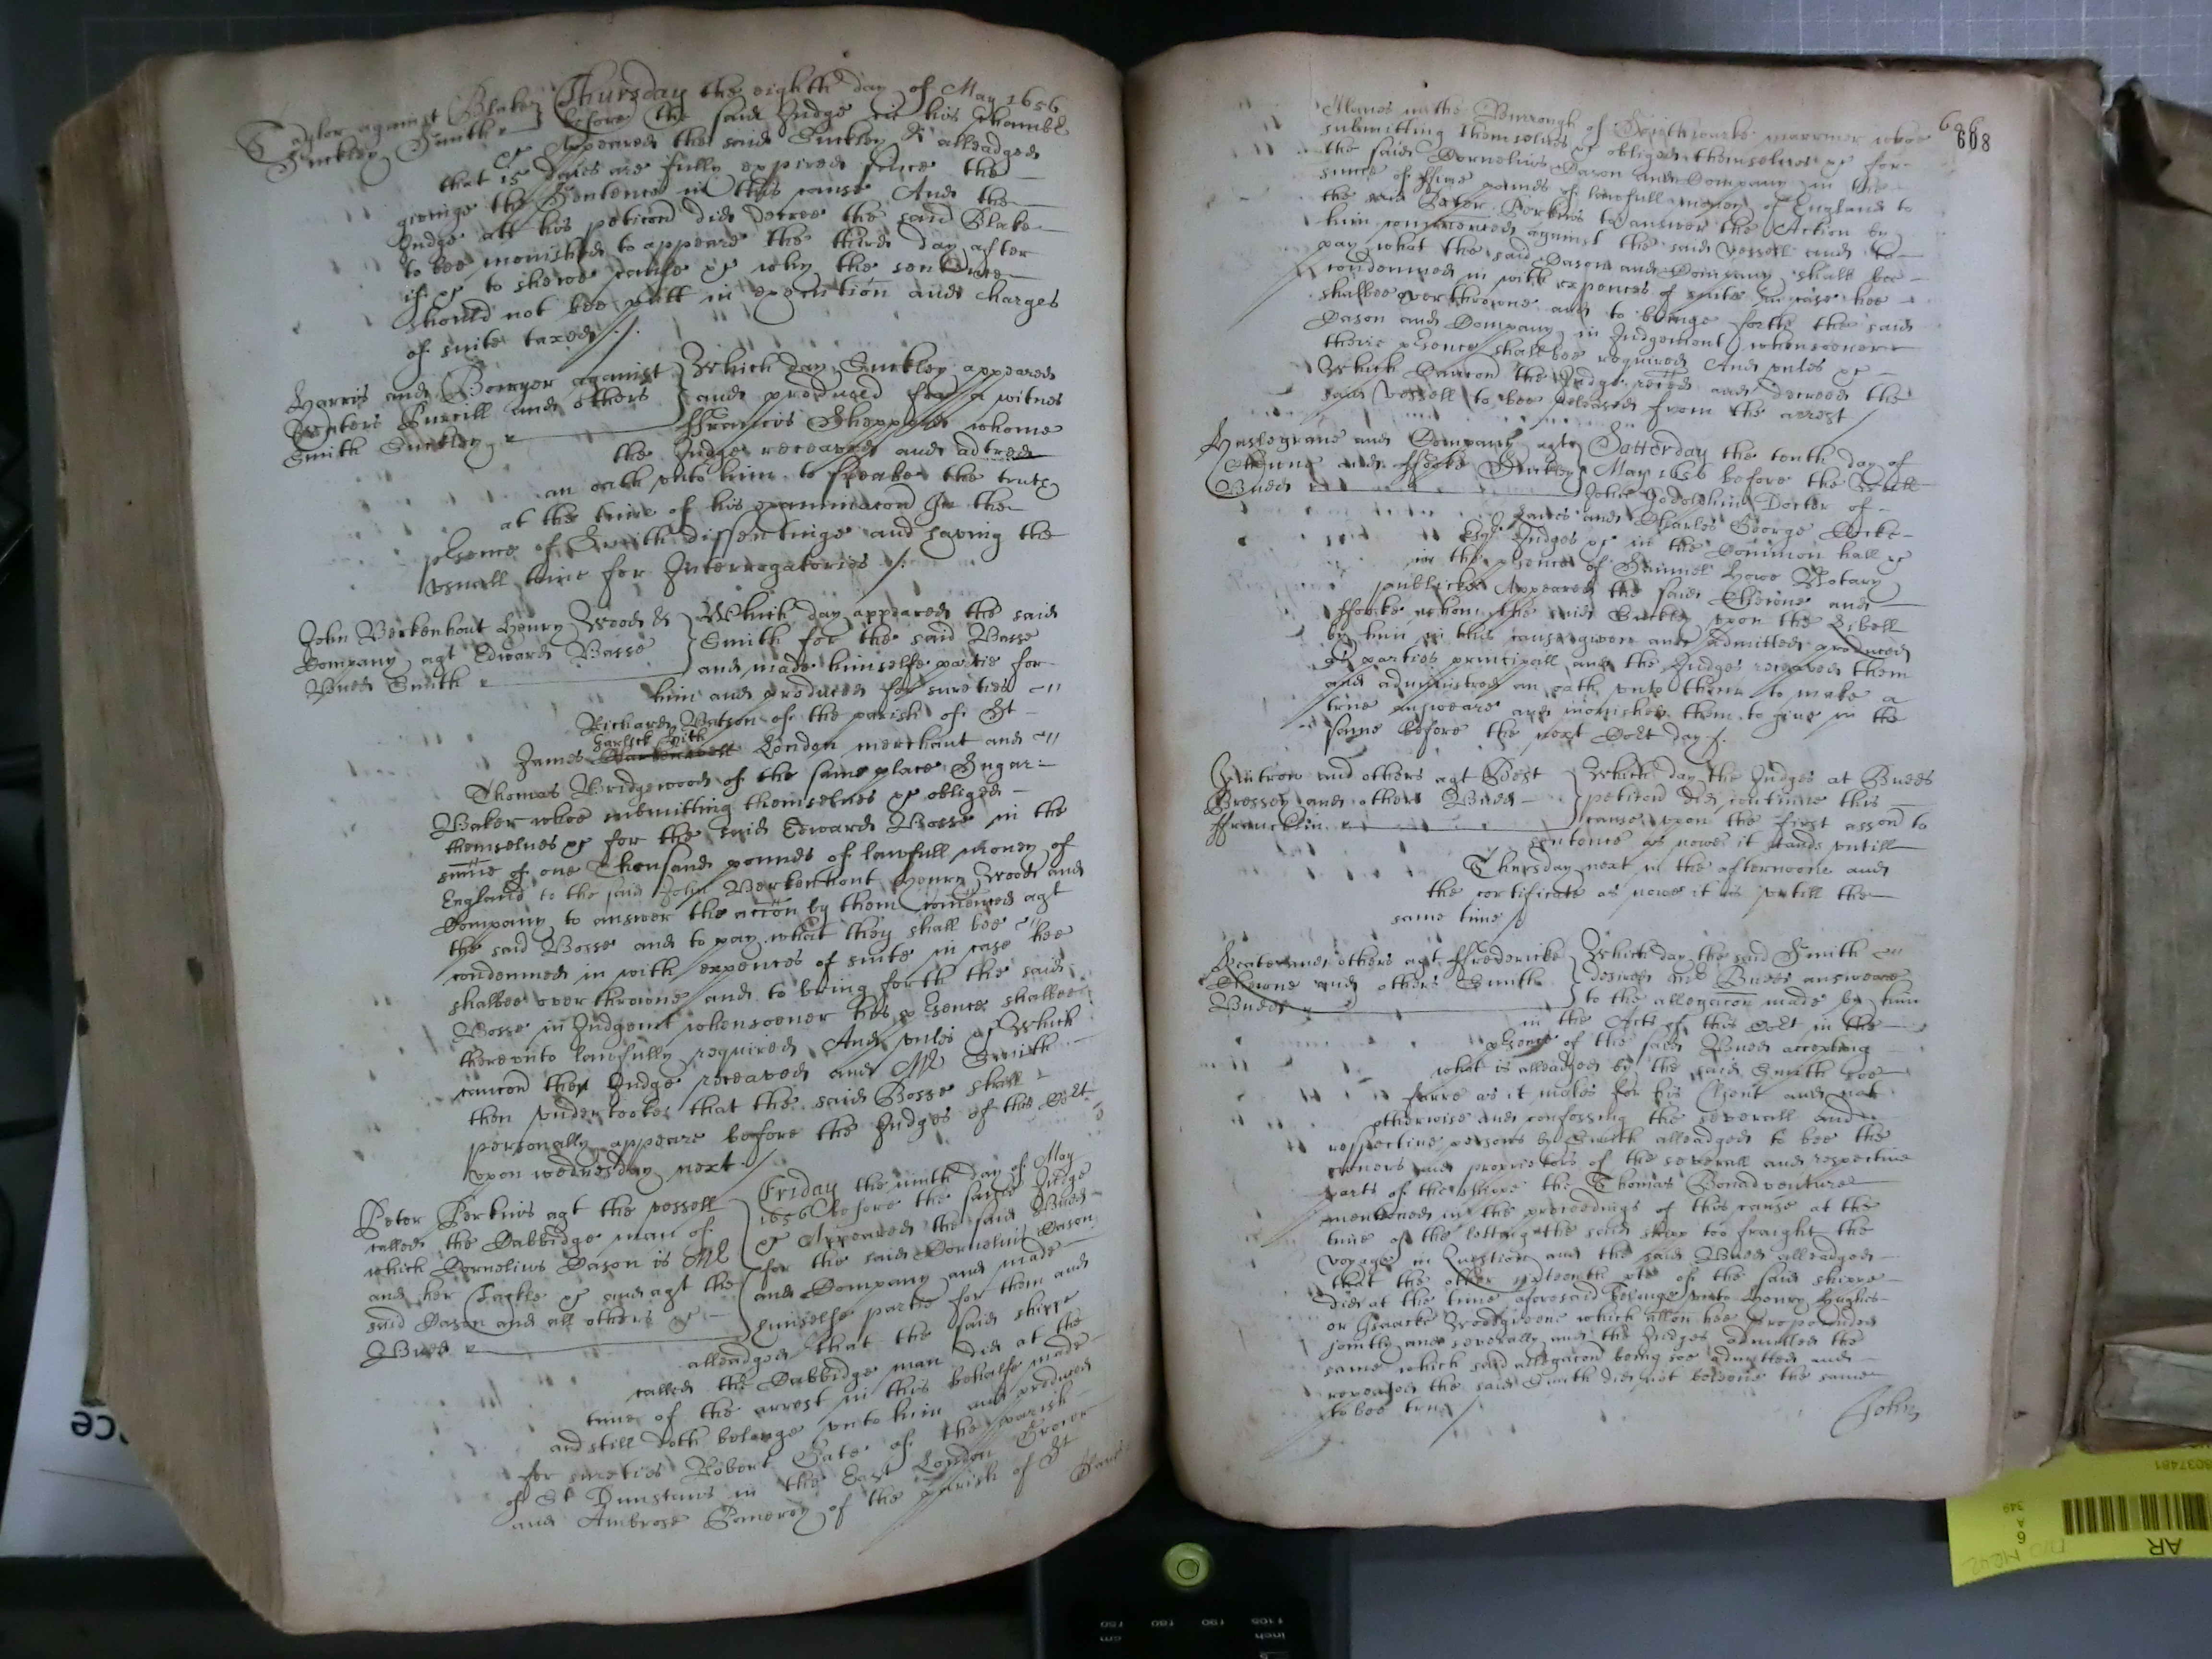 Taylor against Blake
Suckley Smith
Thursday the eighth day of May 1656
before the said Judge in his Chamber
et Appeared the said Suckley & alleadged
that 15 daies are fully expired since the
giveinge the Sentence in this cause And the
Judge att his peticon did decree the said Blake
to bee monished to appeare the third day after
if et to shewe cause et why the sentence
should not bee putt in execution and charges
of suite taxed
Harris and Bowyer against
Peters Purcill and others
Smith Suckley
Which day Suckley appeared
and produced for a witnes
ffrancis Shepperd whome
the Judge receaved and admred
an oath unto him to speake the truth
at the time of his examinacon In the
presence of Smith dissentinge and saving the
usuall time for Interrogatories
John Berkenhout Henry Wood &
Company agt Edward Basse
Budd Smith
Which day appeared the said
Smith for the said Basse
and made himselfe partie for
him and produced for sureties
Richard Batson of the parish of St
Garlick Hith
James London merchant and
Thomas Bridgewood of the same place Sugar
Baker whoe submitting themselves et obliged
themselves et for the said Edward Bosse in the
summe of one Thousand pounds of lawfull money of
England to the said John Berkenhout Henry Wood and
Company to answer the action by them comenced agt
the said Bosse and to pay what they shall bee
condemned in with expences of suite in case hee
shalbee overthrowne and to bring forth the said
Bosse in Judgemt whensoever his presence shalbee
thereunto lawfully required And unles et Which
caucon the Judge receaved and Mr Smith
then undertooke that the said Bosse shall
personally appeare before the Judges of this Cort
upon wednesday next
Peter Perkins agt the vessell
called the Cabbidge man of
which Cornelius Cason is Mr
and her Tackle et and agt the
said Cason and all others et
Budd
Friday the ninth day of May
1656 before the same Judge
et Appeared the said Budd
for the said Cornelius Cason
and Company and made
himselfe partie for them and
alleadged that the said shipp
called the Cabbidge man did at the
time of the arrest in this behalfe made
and still doth belonge unto him and produced
for sureties Robert Gate of the parish
of St Dunstans in the East London Grocer
and Ambrose Pomeroy of the parish of St
608
in the Burrough of Southwarke marriner whoe
submitting themselves et obliged themselves et for
the said Cornelius Cason and Company in the
summe of ffive pounds of lawfull money of England to
the said Peter Perkins to answer the Action by
him commenced against the said vessell and to
pay what the said Cason and Company shall bee
condemned in with expences of suite In case hee
shalbee overthrowne and to bringe forth the said
Cason and Company in Judgement whensoever
theire presence shalbee required And unles et
Which Caucon the Judge reced and decreed the
said vessell to bee released from the arrest
Haslegrave and Company agt
Cheyne and ffooke Suckley
Budd
Satterday the tenth day of
May 1656 before the Worll
John Godolphin Doctor of
Lawes and Charles George Cocke
Esqr Judges et in the Common hall et
in the presence of Samuel Howe Notary
publicke Appeared the said Cheyne and
ffooke whom the said Suckley upon the Libell
by him in this cause given and admitted produced
as parties principall and the Judges receaved them
and administred an oath unto them to make a
true answeare and monished them to give in the
same before the next Cort day
and others agt Best
Bressey and others Budd
ffrancklin
Which day the Judges at Budds
peticon did continue this
cause upon the first asson to
sentence as nowe it stands untill
Thursday next in the afternoone and
the certificate as nowe it is untill the
same time
and others agt ffredericke
Cheyne and others Smith
Budd
Which day the said Smith
desired Mr Budds answeare
to the allegacon made by him
in the Acts of this Cort in the
presence of the said Budd accepting
what is alleadged by the said Smith soe
farre as it makes for his Client and not
otherwise and confessing the severall and
respective persons by Smith alleadged to bee the
owners and proprietors of the severall and respective
parts of the shippe the Thomas Bonadventure
mentioned in the proceedings of this cause at the
time of the letting the said shipp too fraight the
voyage in Question and the said Budd alleadged
that the other sixteenth pte of the said shippe
did at the time aforesaid belonge unto Henry Hughes
or Isaacke Woodgreene which allon hee propounded
jointly and severally and the Judges admitted the
same which said allegacon being soe admitted and
repeated the said Smith did not beleeve the same
to bee true
John